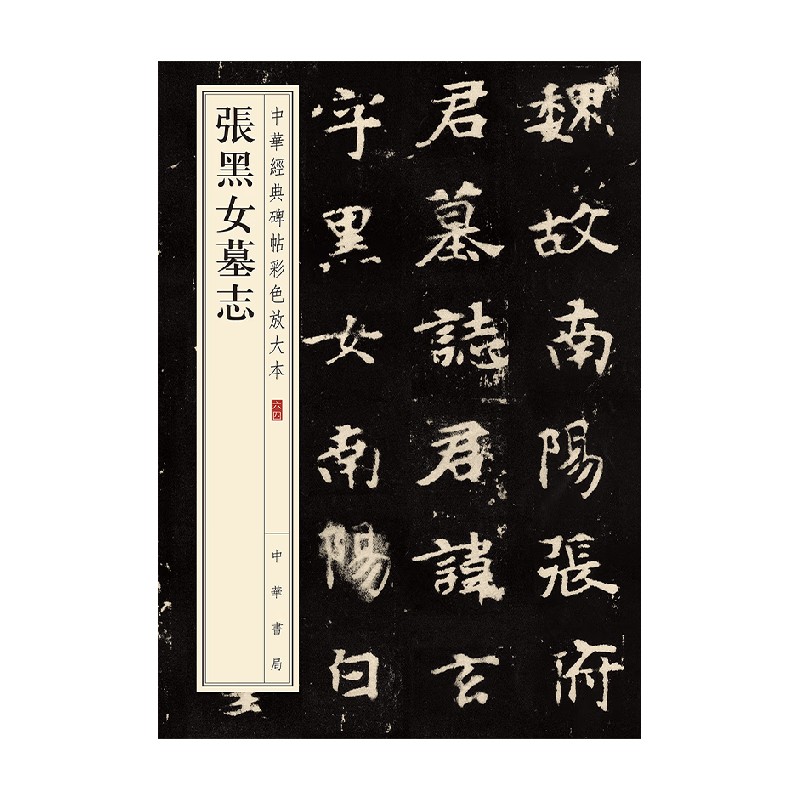 魏故南陽張府
君墓誌君諱玄
字黑女南陽白
中華經典碑帖彩色放大本
六四
張黑女墓志
中華書局